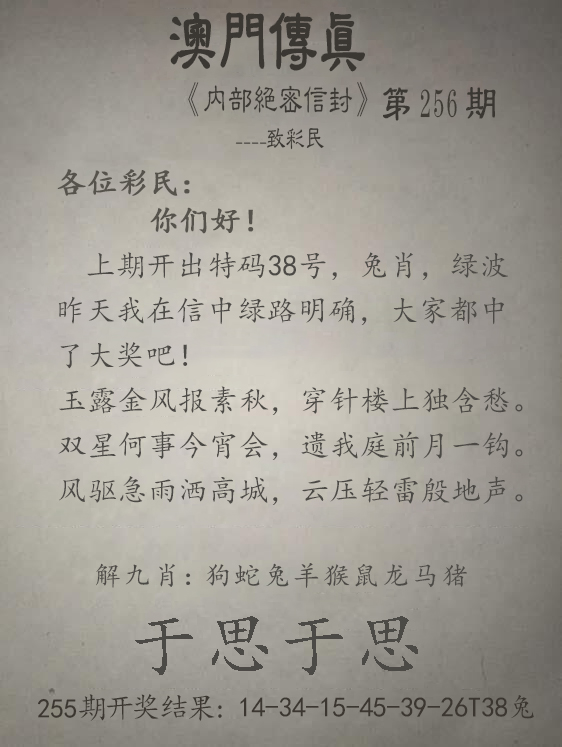 澳門傳真
《内部絕密信封》第256期
----致彩民
各位彩民：
你们好！
上期开出特码38号，兔肖，绿波
昨天我在信中绿路明确，大家都中
了大奖吧！
玉露金风报素秋，穿针楼上独含愁。
双星何事今宵会，遗我庭前月一钩。
风驱急雨洒高城，云压轻雷殷地声。
解九肖：狗蛇兔羊猴鼠龙马猪
于思于思
255期开奖结果：14-34-15-45-39-26T38兔